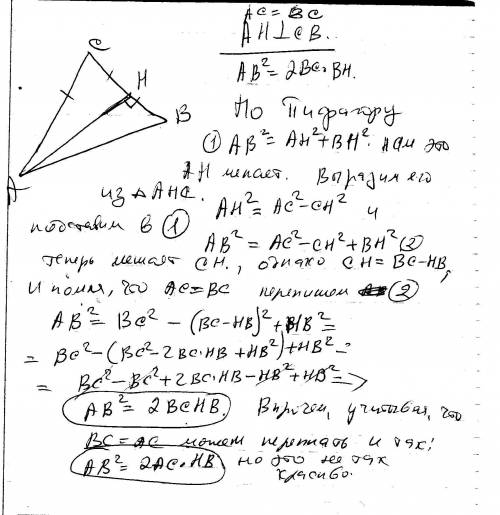 AC = BC
AH⊥CB.
AB² = 2BC·BH.
C
H
B
A
По Пифагору
① AB² = AH² + BH². Нам это
AH мешает. Выразим его
из △AHC.
AH² = AC² - CH² и
подставим в ①
AB² = AC² - CH² + BH² (2)
теперь мешает CH., однако CH = BC-HB,
и помня, что AC=BC перепишем ②
AB² = BC² - (BC-HB)² + HB² =
= BC² - (BC² - 2BC·HB + HB²) + HB² =
= BC² - BC² + 2BC·HB - HB² + HB² =>
AB² = 2BC HB. Впрочем, учитывая, что
BC = AC может и так:
AB² = 2AC·HB но это не так
красиво.